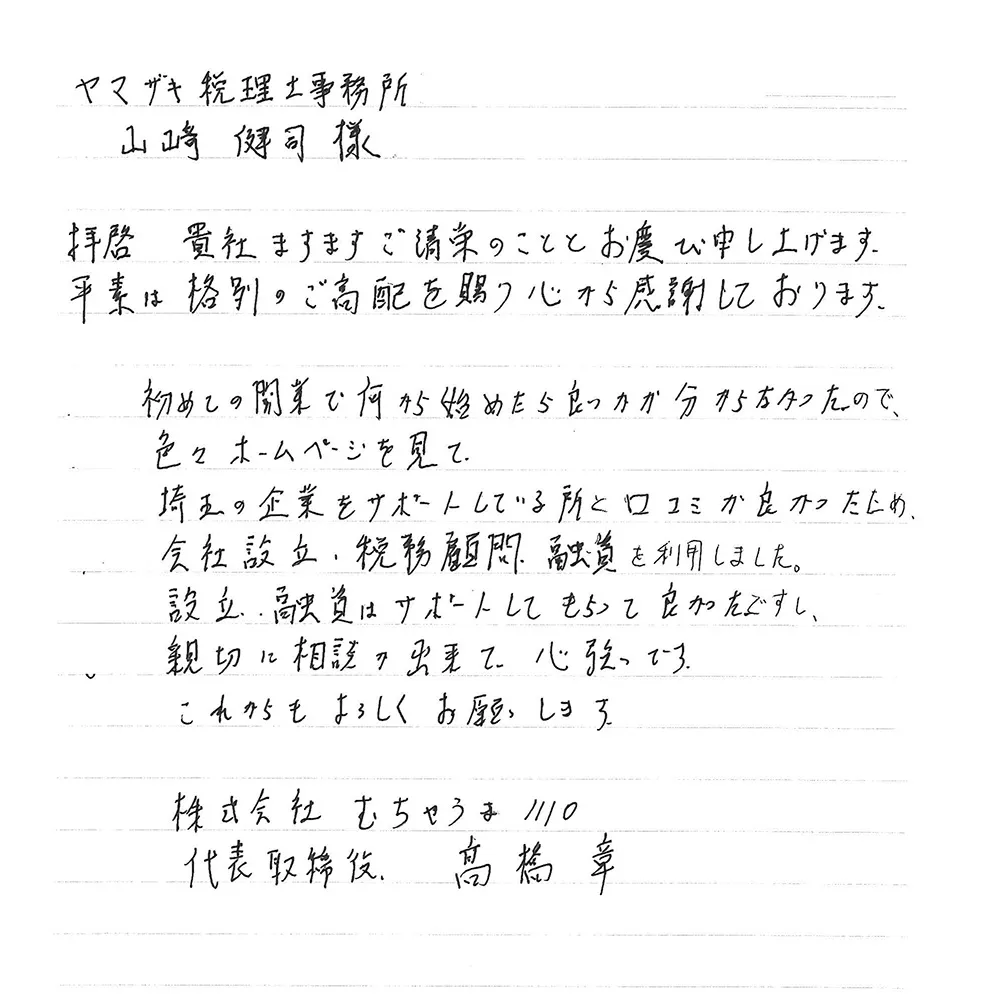 ヤマザキ税理士事務所
山崎 健司 様
拝啓 貴社ますますご清栄のこととお慶び申し上げます。
平素は格別のご高配を賜り心から感謝しております。
初めての開業で何から始めたら良いかが分からなかったので、
色々ホームページを見て、
埼玉の企業をサポートしている所と口コミが良かったため、
会社設立、税務顧問、融資を利用しました。
設立、融資はサポートしてもらって良かったですし、
親切に相談が出来て、心強いです。
これからもよろしくお願いします。
株式会社 むちゃうま1110
代表取締役 髙橋 章